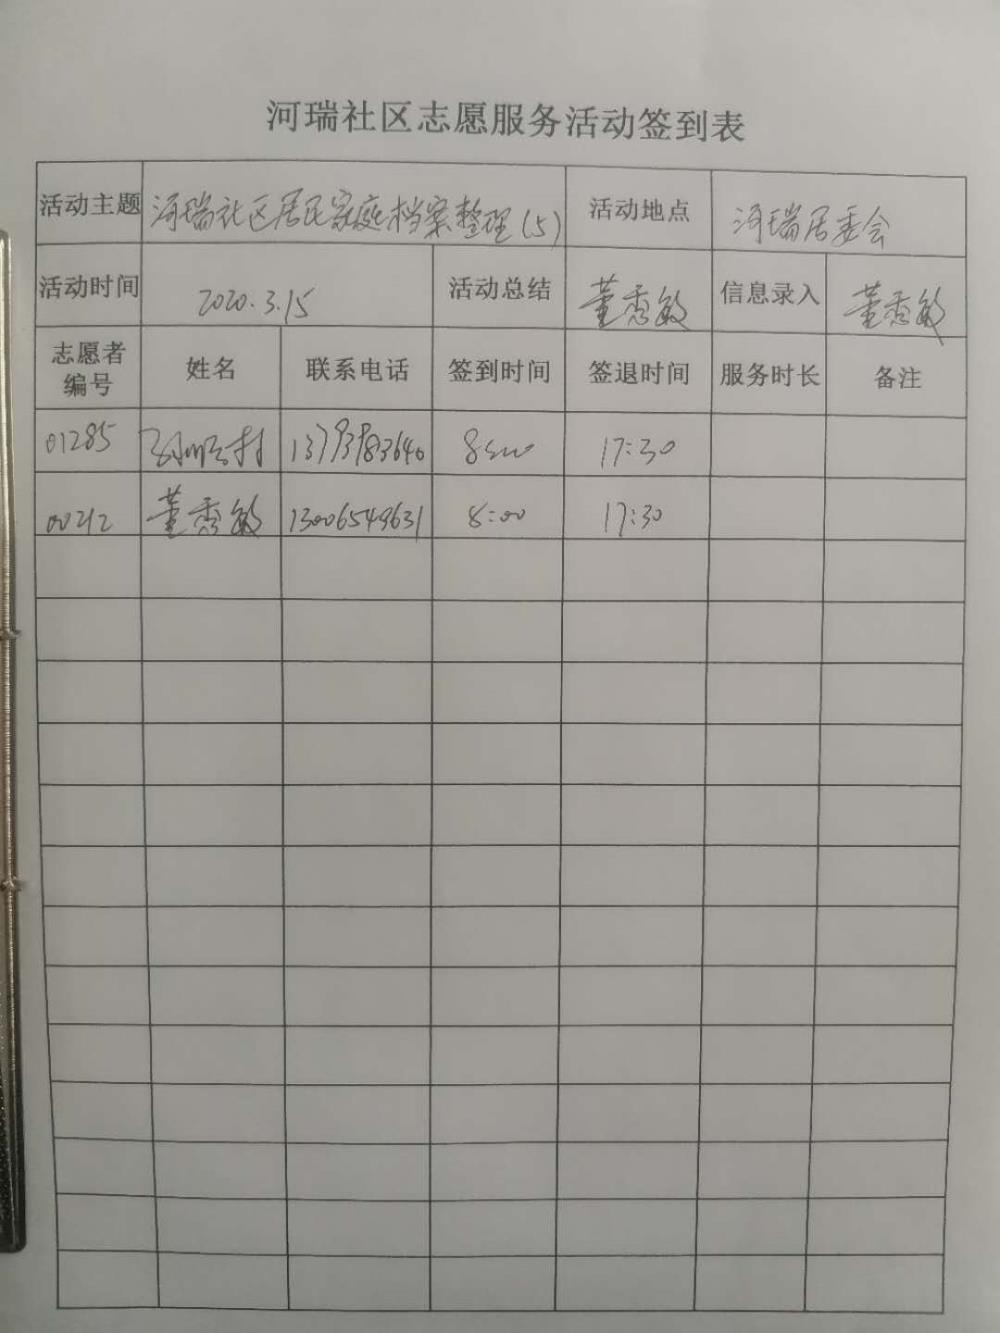 河瑞社区志愿服务活动签到表
活动主题 河瑞社区居民家庭档案整理(5) 活动地点 河瑞居委会
活动时间 2020.3.15 活动总结 董秀敏 信息录入 董秀敏
志愿者编号 姓名 联系电话 签到时间 签退时间 服务时长 备注
01285 13793783640 8:00 17:30
00212 董秀敏 13006549631 8:00 17:30